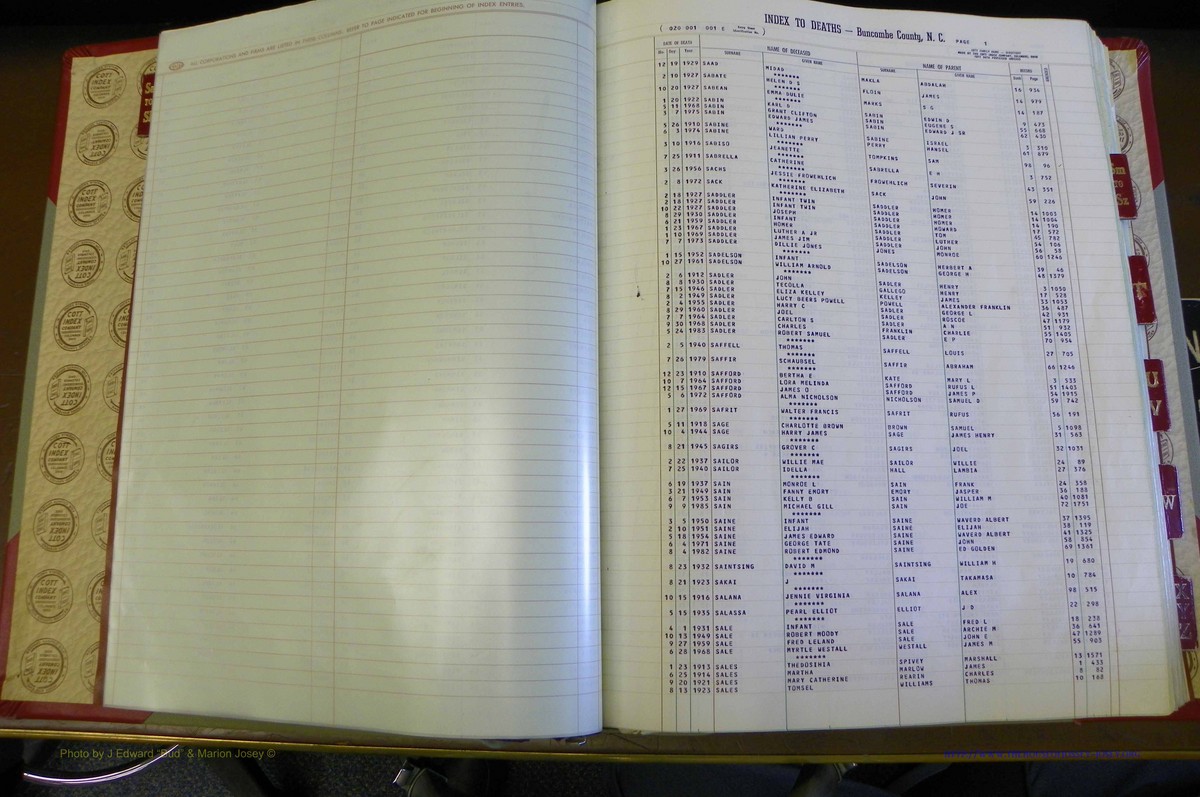 ALL CORPORATIONS AND FIRMS ARE LISTED IN FIRM COLUMNS. REFER TO PAGE INDICATED FOR BEGINNING OF INDEX ENTRIES.
INDEX TO DEATHS — Buncombe County, N. C. PAGE 1
( 020 001 001 E )
DATE OF DEATH NAME OF DECEASED NAME OF PARENT RECORD
SURNAME GIVEN NAME SURNAME GIVEN NAME Book Page
12 19 1929 SAAD MIDAD MAKLA ABDALAH 16 934
2 10 1927 SABATE HELEN B S FLOIN JAMES 14 979
10 20 1927 SABEAN EMMA DULIE MARKS S G 14 187
1 20 1922 SABIN KARL D SABIN EDWIN D 9 473
5 11 1968 SABIN GRANT CLIFTON SABIN EUGENE S 55 668
3 7 1975 SABIN EDWARD JAMES SABIN EDWARD J SR 62 430
5 26 1910 SABINE WARD SABINE ISRAEL 3 310
6 3 1974 SABINE LILLIAN PERRY PERRY HANSEL 61 679
3 10 1916 SABISO JEANETTE TOMPKINS SAM 98 96
7 25 1911 SABRELLA CATHERINE SABRELLA E H 3 752
3 26 1956 SACHS JESSIE FROWEHLICH FROWEHLICH SEVERIN 43 351
2 8 1972 SACK KATHERINE ELIZABETH SACK JOHN 59 226
2 18 1927 SADDLER INFANT TWIN SADDLER HOMER 14 1003
2 18 1927 SADDLER INFANT TWIN SADDLER HOMER 14 1004
10 22 1927 SADDLER JOSEPH SADDLER HOMER 14 190
8 29 1930 SADDLER INFANT SADDLER HOWARD 17 572
6 21 1959 SADDLER HOMER SADDLER TOM 45 782
1 23 1967 SADDLER LUTHER A JR SADDLER LUTHER 54 106
1 10 1969 SADDLER JAMES JIM SADDLER JOHN 56 53
7 7 1973 SADDLER DILLIE JONES JONES MONROE 60 1246
1 15 1952 SADELSON INFANT SADELSON HERBERT A 39 46
10 27 1961 SADELSON WILLIAM ARNOLD SADELSON GEORGE H 48 1379
2 6 1912 SADLER JOHN SADLER HENRY 3 1050
8 8 1930 SADLER TECOLLA GALLEGO HENRY 17 528
7 15 1946 SADLER ELIZA KELLEY KELLEY JAMES 33 1053
8 2 1949 SADLER LUCY BEERS POWELL POWELL ALEXANDER FRANKLIN 36 487
2 4 1955 SADLER HARRY C SADLER GEORGE L 42 931
8 29 1960 SADLER JOEL SADLER ROSCOE 47 1179
7 7 1964 SADLER CARLTON S SADLER A N 51 932
9 30 1968 SADLER CHARLES FRANKLIN CHARLIE 55 1405
5 24 1983 SADLER ROBERT SAMUEL SADLER E P 70 954
2 5 1940 SAFFELL THOMAS SAFFELL LOUIS 27 705
7 26 1979 SAFFIR SCHAUBSEL SAFFIR ABRAHAM 66 1246
12 23 1910 SAFFORD BERTHA E KATE MARY L 3 533
10 7 1964 SAFFORD LORA MELINDA SAFFORD RUFUS L 51 1403
12 15 1967 SAFFORD JAMES O SAFFORD JAMES P 54 1915
5 6 1972 SAFFORD ALMA NICHOLSON NICHOLSON SAMUEL D 59 742
1 27 1969 SAFRIT WALTER FRANCIS SAFRIT RUFUS 56 191
5 11 1918 SAGE CHARLOTTE BROWN BROWN SAMUEL 5 1098
10 4 1944 SAGE HARRY JAMES SAGE JAMES HENRY 31 563
8 21 1945 SAGIRS GROVER C SAGIRS JOEL 32 1031
2 22 1937 SAILOR WILLIE MAE SAILOR WILLIE 24 89
7 25 1940 SAILOR IDELLA HALL LAMBIA 27 376
6 19 1937 SAIN MONROE L SAIN FRANK 24 358
3 21 1949 SAIN FANNY EMORY EMORY JASPER 36 188
6 7 1953 SAIN KELLY B SAIN WILLIAM M 40 1081
9 9 1985 SAIN MICHAEL GILL SAIN JOE 72 1751
3 5 1950 SAINE INFANT SAINE WAVERD ALBERT 37 1395
2 10 1951 SAINE ELIJAH SAINE ELIJAH 38 119
5 18 1954 SAINE JAMES EDWARD SAINE WAVERD ALBERT 41 1325
6 4 1971 SAINE GEORGE TATE SAINE JOHN 58 854
8 4 1982 SAINE ROBERT EDMOND SAINE ED GOLDEN 69 1361
8 23 1932 SAINTSING DAVID M SAINTSING WILLIAM H 19 680
8 21 1923 SAKAI J SAKAI TAKAMASA 10 784
10 15 1916 SALANA JENNIE VIRGINIA SALANA ALEX 98 515
5 15 1935 SALASSA PEARL ELLIOT ELLIOT J D 22 298
4 1 1931 SALE INFANT SALE FRED L 18 238
10 13 1949 SALE ROBERT MOODY SALE ARCHIE M 36 641
9 27 1959 SALE FRED LELAND SALE JOHN E 47 1289
6 28 1968 SALE MYRTLE WESTALL WESTALL JAMES M 55 903
1 23 1913 SALES THEDOSIHIA SPIVEY MARSHALL 13 1571
6 25 1914 SALES MARTHA MARLOW JAMES 1 433
9 20 1921 SALES MARY CATHERINE REARIN CHARLES 8 82
8 13 1923 SALES TOMSEL WILLIAMS THOMAS 10 168
COTT INDEX COMPANY
T
U
V
W
Photo by J Edward "Bud" & Marion Josey ©